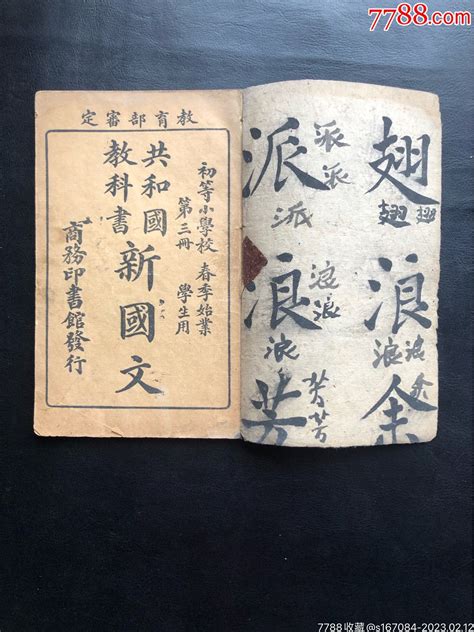 7788.com
教育部審定
初等小學校 春季始業
第三冊 學生用
共和國
教科書
新國文
商務印書館發行
翅
翅 翅
浪
浪 浪
余
派
派 派
派
浪
浪 浪
浪
芳
芳 芳
7788收藏@s167084-2023.02.12